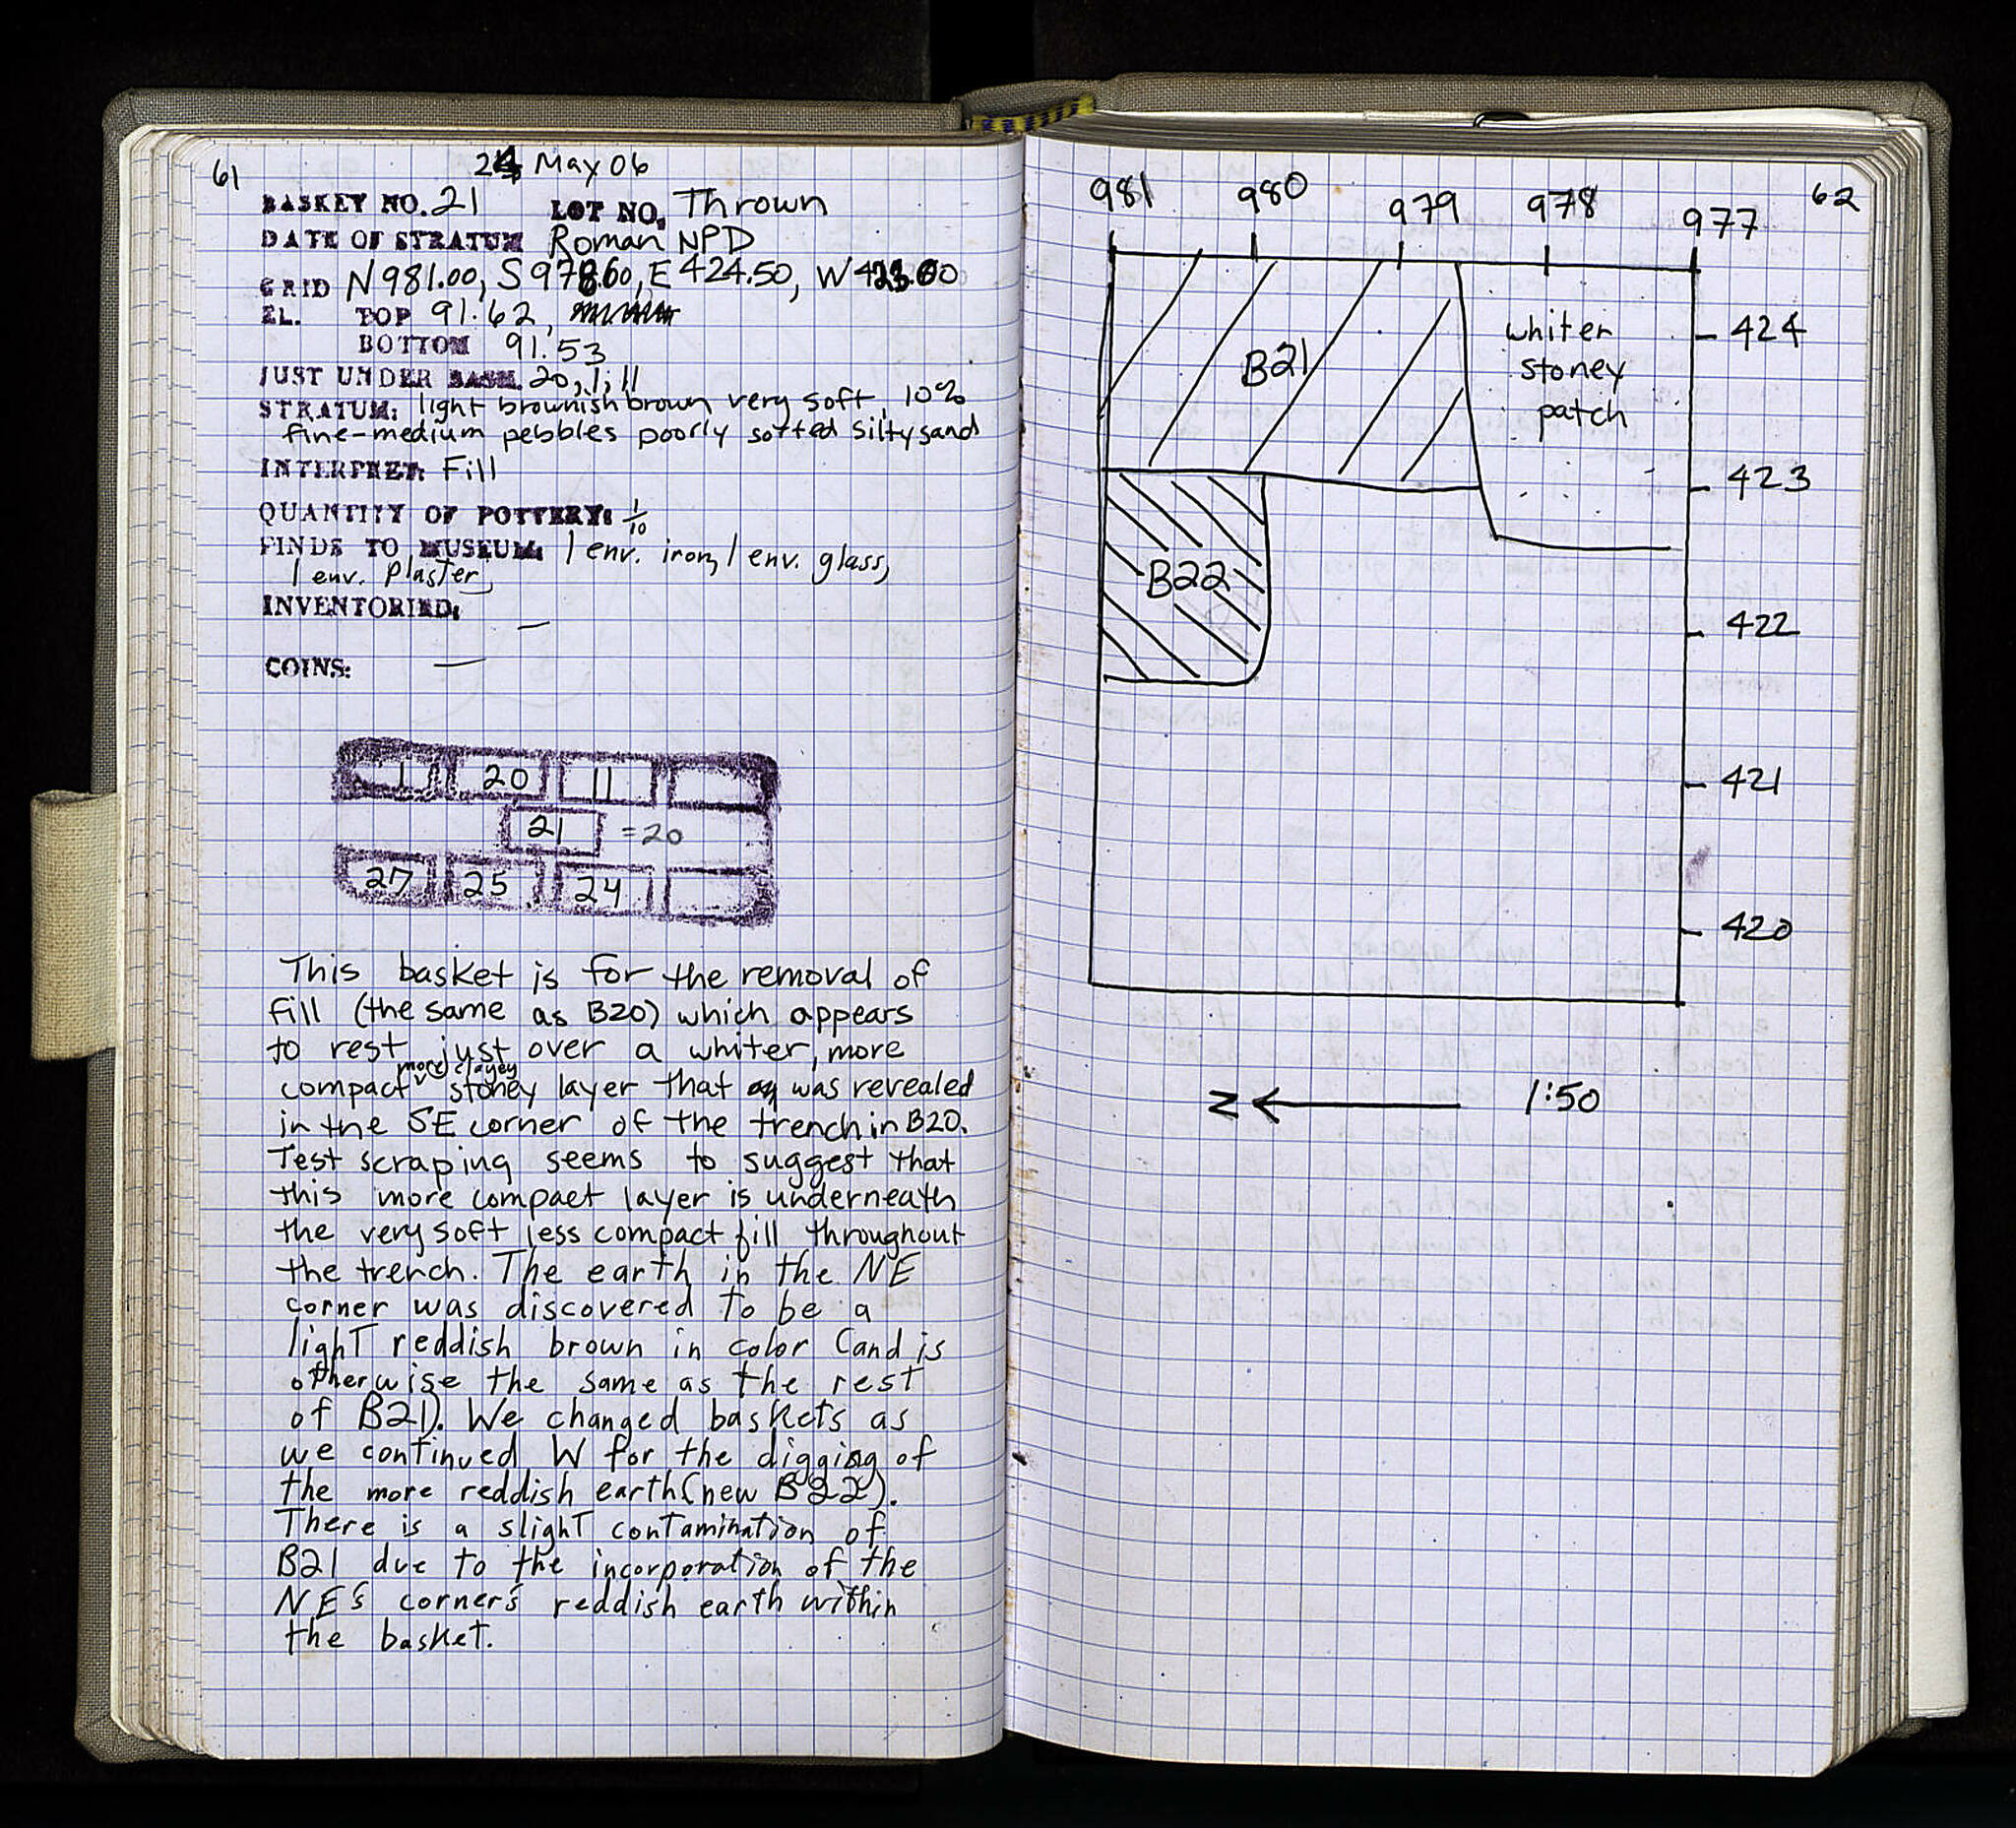 61
24 May 06
BASKET NO. 21 LOT NO. Thrown
DATE OF STRATUM Roman NPD
GRID N 981.00, S 978.60, E 424.50, W 423.00
EL. TOP 91.62,
BOTTOM 91.53
JUST UNDER BASK. 20, 1, 11
STRATUM: light brownish brown very soft, 10%
fine-medium pebbles poorly sorted silty sand
INTERPRET: Fill
QUANTITY OF POTTERY: 1/10
FINDS TO MUSEUM: 1 env. iron, 1 env. glass,
1 env. Plaster
INVENTORIED: —
COINS: —
1 20 11
21 = 20
27 25 24
This basket is for the removal of
fill (the same as B20) which appears
to rest just over a whiter, more
compact more clayey stoney layer that was revealed
in the SE corner of the trench in B20.
Test scraping seems to suggest that
this more compact layer is underneath
the very soft less compact fill throughout
the trench. The earth in the NE
corner was discovered to be a
light reddish brown in color (and is
otherwise the same as the rest
of B21). We changed baskets as
we continued W for the digging of
the more reddish earth (new B22).
There is a slight contamination of
B21 due to the incorporation of the
NE's corner's reddish earth within
the basket.
62
981 980 979 978 977
424
423
422
421
420
B21
whiter
stoney
patch
B22
N 1:50